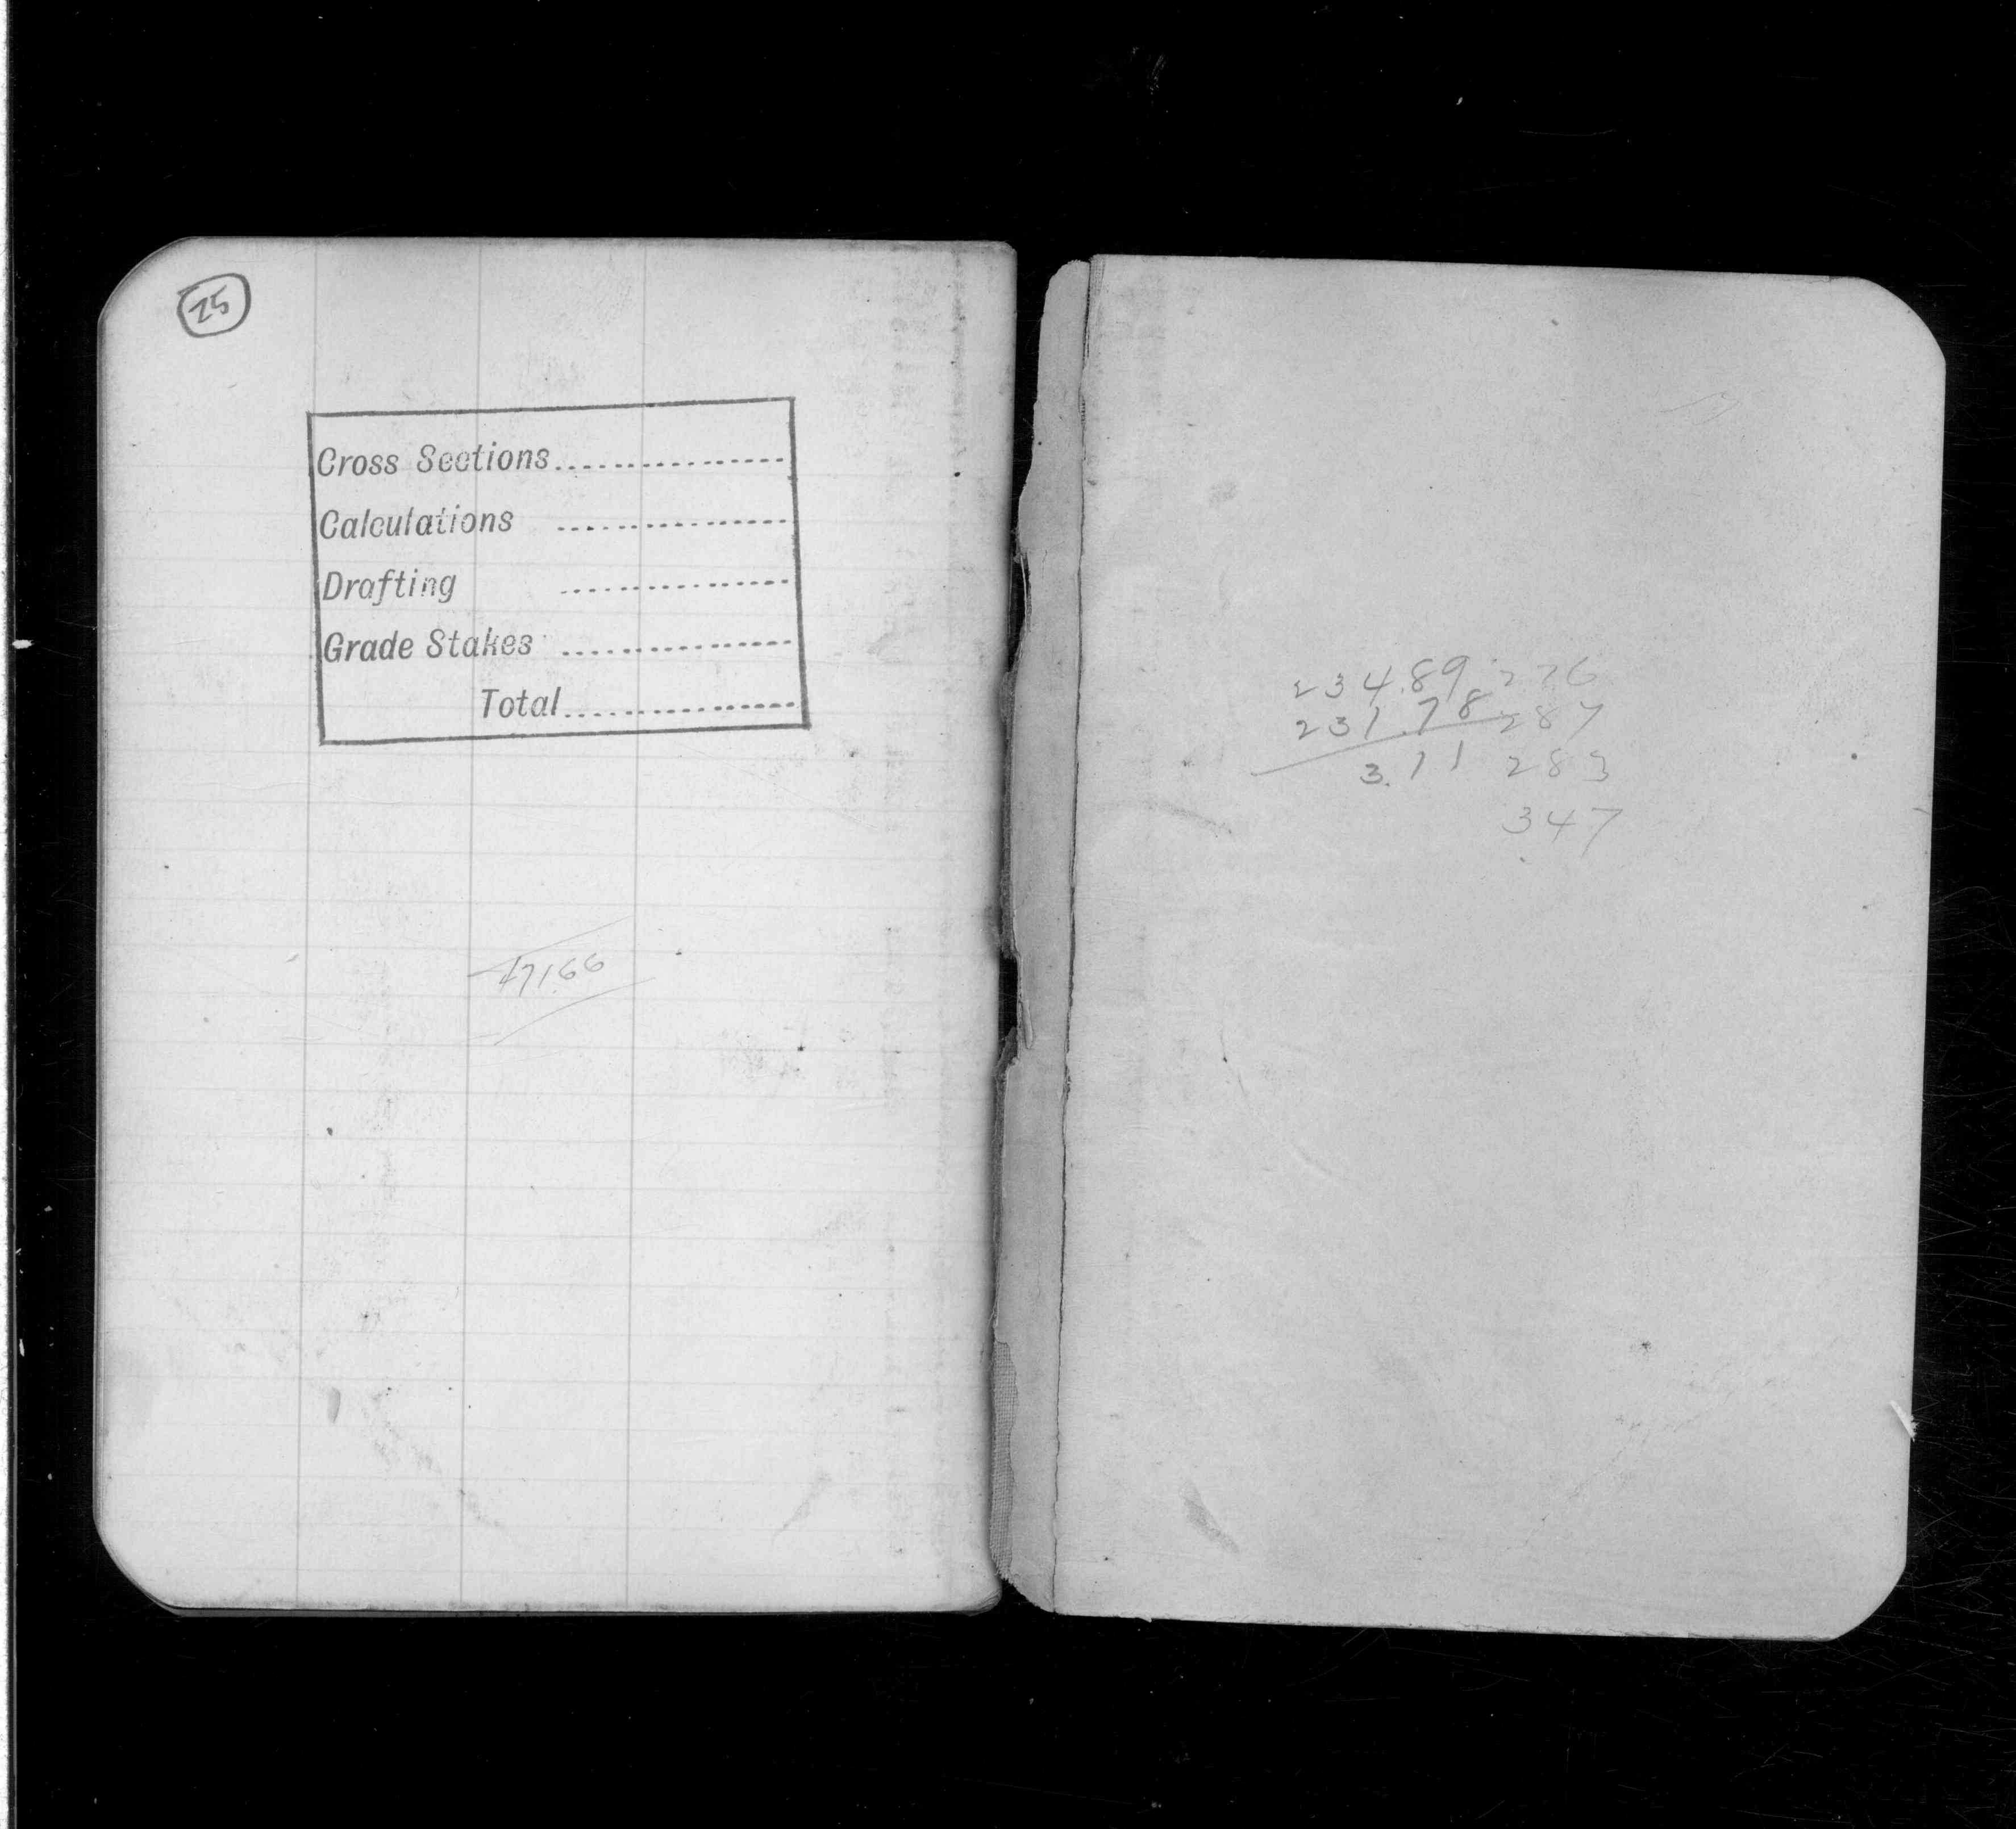 25
Cross Sections
Calculations
Drafting
Grade Stakes
Total
471.66
234.89 276
231.78 287
3.11 283
347